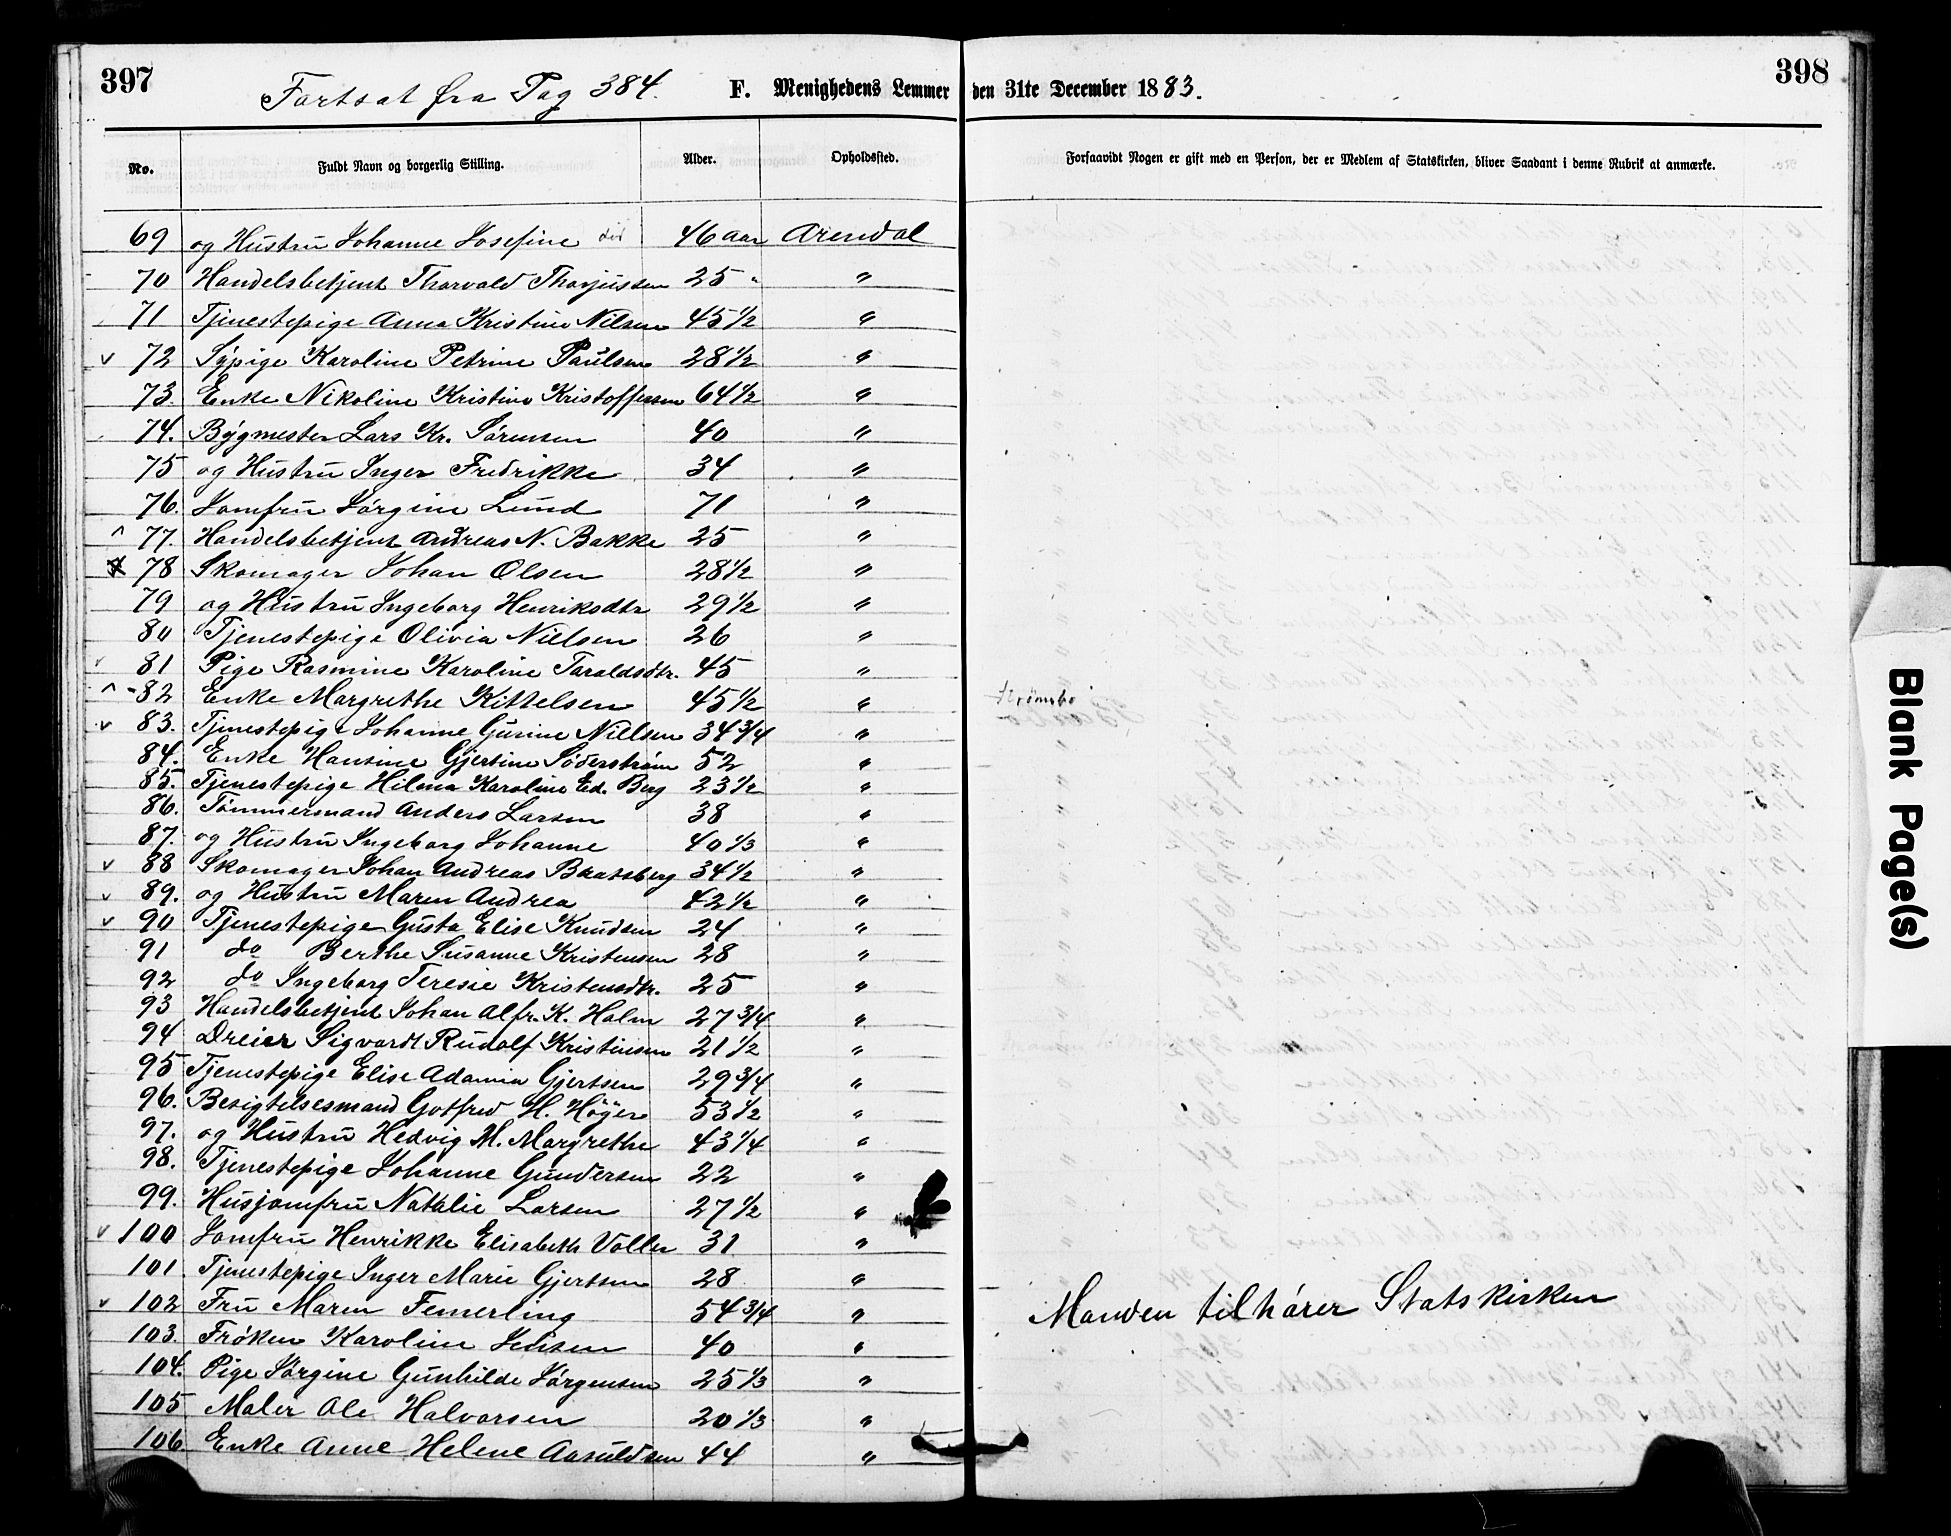 397
398
Fortsat fra Pag 384. F. Menighedens Lemmer den 31te December 1883.
No. Fuldt Navn og borgerlig Stilling. Alder. Opholdssted. Forsaavidt Nogen er gift med en Person, der er Medlem af Statskirken, bliver Saadant i denne Rubrik at anmærke.
69 og Hustru Johanne Josefine 46 aar Arendal
70 Handelsbetjent Thorvald Thorjussen 25 " "
71 Tjenestepige Anna Kristine Nilsen 45 1/2 "
v 72 Sypige Karoline Petrine Paulsen 28 1/2 "
73. Enke Nikoline Kristine Kristoffersen 64 1/2 "
74. Bygmester Lars Kr. Sørensen 40 "
75 og Hustru Inger Fredrikke 34 "
76. Jomfru Jørgine Lund 71 "
^ 77. Handelsbetjent Andreas N. Bakke 25 "
78 Skomager Johan Olsen 28 1/2 "
79 og Hustru Ingeborg Henriksdtr 29 1/2 "
80 Tjenestepige Olivia Nielsen 26 "
v 81 Pige Rasmine Karoline Taraldsdtr. 45 "
^ - 82 Enke Margrethe Kittelsen 45 1/2 " Strømsbo
v 83. Tjenestepige Johanne Gurine Nielsen 34 3/4 "
84. Enke Hansine Gjertine Söderstrøm 52 "
85. Tjenestepige Hilma Karoline Ed. Berg 23 1/2 "
86. Tømmermand Anders Larsen 38 "
87. og Hustru Ingeborg Johanne 40 1/3 "
v 88 Skomager Johan Andreas Bratsberg 34 1/2 "
v 89. og Hustru Maren Andrea 42 1/2 "
v 90 Tjenestepige Gusta Elise Knudsen 24 "
91 do Berthe Susanne Kristensen 28 "
92 do Ingeborg Teresie Kristensdtr. 25 "
93 Handelsbetjent Johan Alfr. K. Holm 27 3/4 "
94 Dreier Sigvardt Rudolf Kristensen 21 1/2 "
95 Tjenestepige Elise Adamia Gjertsen 29 3/4 "
96. Besigtelsesmand Gotfred H. Höyer 53 1/2 "
97. og Hustru Hedvig M. Margrethe 43 1/4 "
98. Tjenestepige Johanne Gundersen 22 "
99. Husjomfru Natalie Larsen 27 1/2 "
v 100 Jomfru Henrikke Elisabeth Voller 31 "
101. Tjenestepige Inger Marie Gjertsen 28 "
v 102 Fru Maren Femerling 54 3/4 " Manden tilhører Statskirken
103. Frøken Karoline Jensen 40 "
104. Pige Jørgine Gunhilde Jørgensen 25 1/3 "
105 Maler Ole Halvorsen 20 1/3 "
106. Enke Anne Helene Aasuldsen 44 "
Blank Page(s)